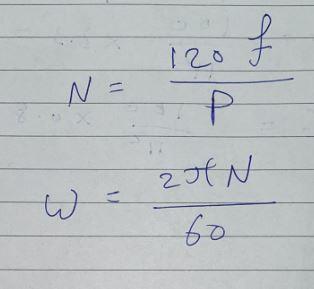 N = 120 f / P
ω = 2πN / 60